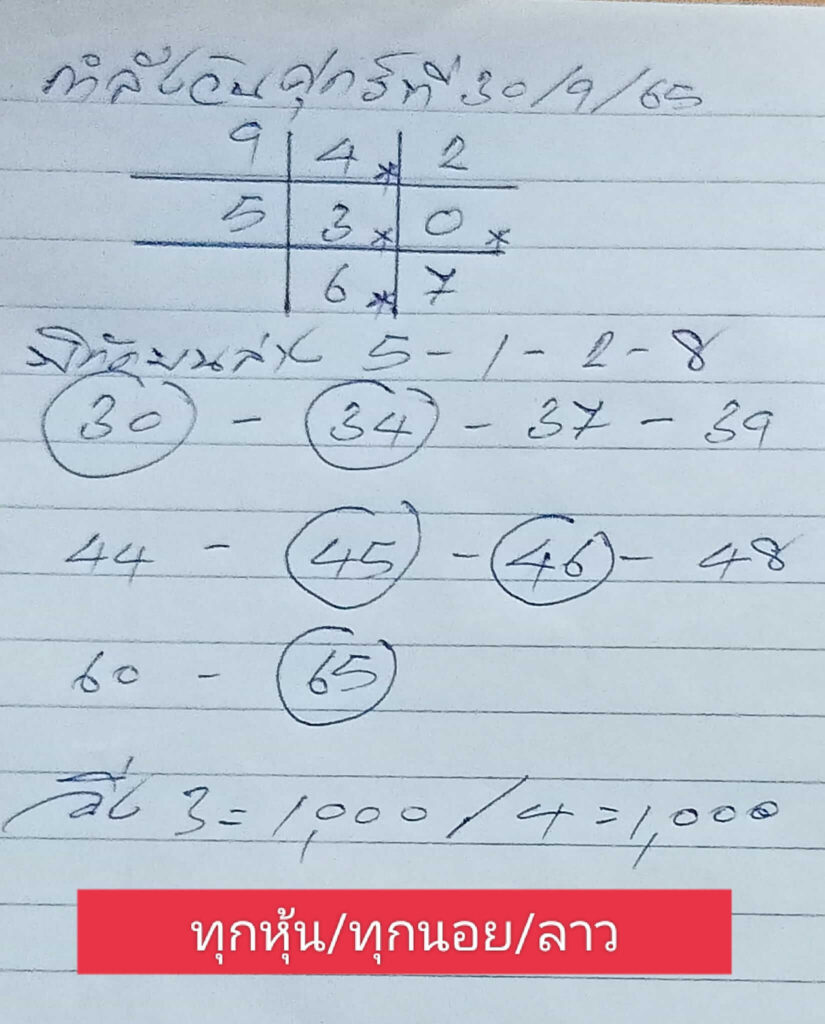 กำลังวันศุกร์ที่ 30/9/65
9 4* 2
5 3* 0*
6* 7
พิกัดบนล่าง 5-1-2-8
30 - 34 - 37 - 39
44 - 45 - 46 - 48
60 - 65
วิ่ง 3=1,000/4=1,000
ทุกหุ้น/ทุกนอย/ลาว